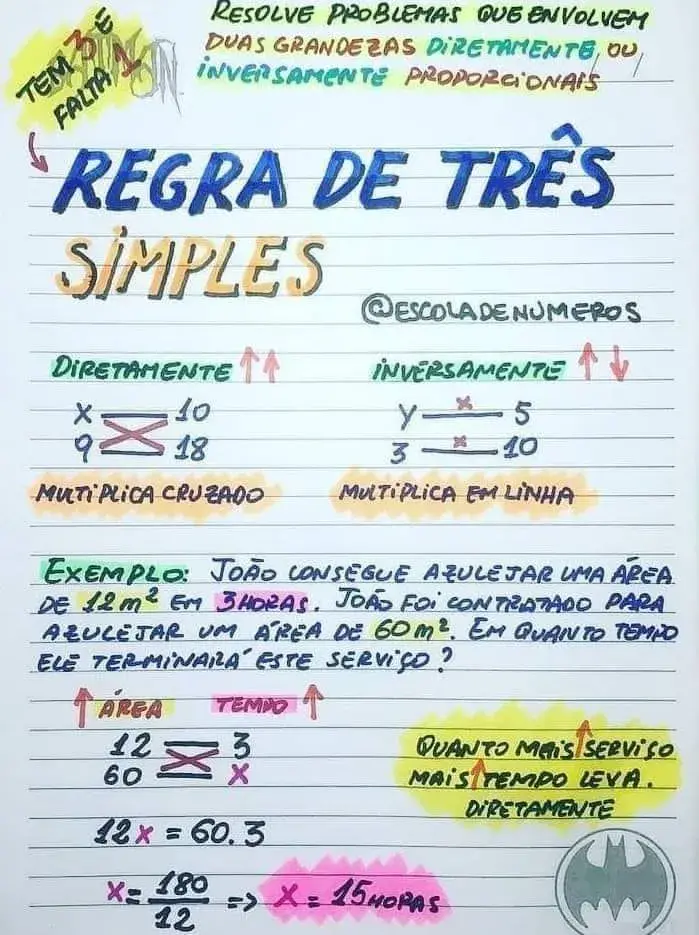 TEM 3 E
FALTA 1
RESOLVE PROBLEMAS QUE ENVOLVEM
DUAS GRANDEZAS DIRETAMENTE OU
INVERSAMENTE PROPORCIONAIS
REGRA DE TRÊS
SIMPLES
@ESCOLADENUMEROS
DIRETAMENTE ↑↑
X 10
9 18
MULTIPLICA CRUZADO
INVERSAMENTE ↑↓
Y x 5
3 x 10
MULTIPLICA EM LINHA
EXEMPLO: JOÃO CONSEGUE AZULEJAR UMA ÁREA
DE 12m² EM 3 HORAS. JOÃO FOI CONTRATADO PARA
AZULEJAR UM ÁREA DE 60m². EM QUANTO TEMPO
ELE TERMINARÁ ESTE SERVIÇO?
↑ ÁREA TEMPO ↑
12 3
60 X
12x = 60.3
X = 180/12 => X = 15 HORAS
QUANTO MAIS ↑ SERVIÇO
MAIS ↑ TEMPO LEVA.
DIRETAMENTE